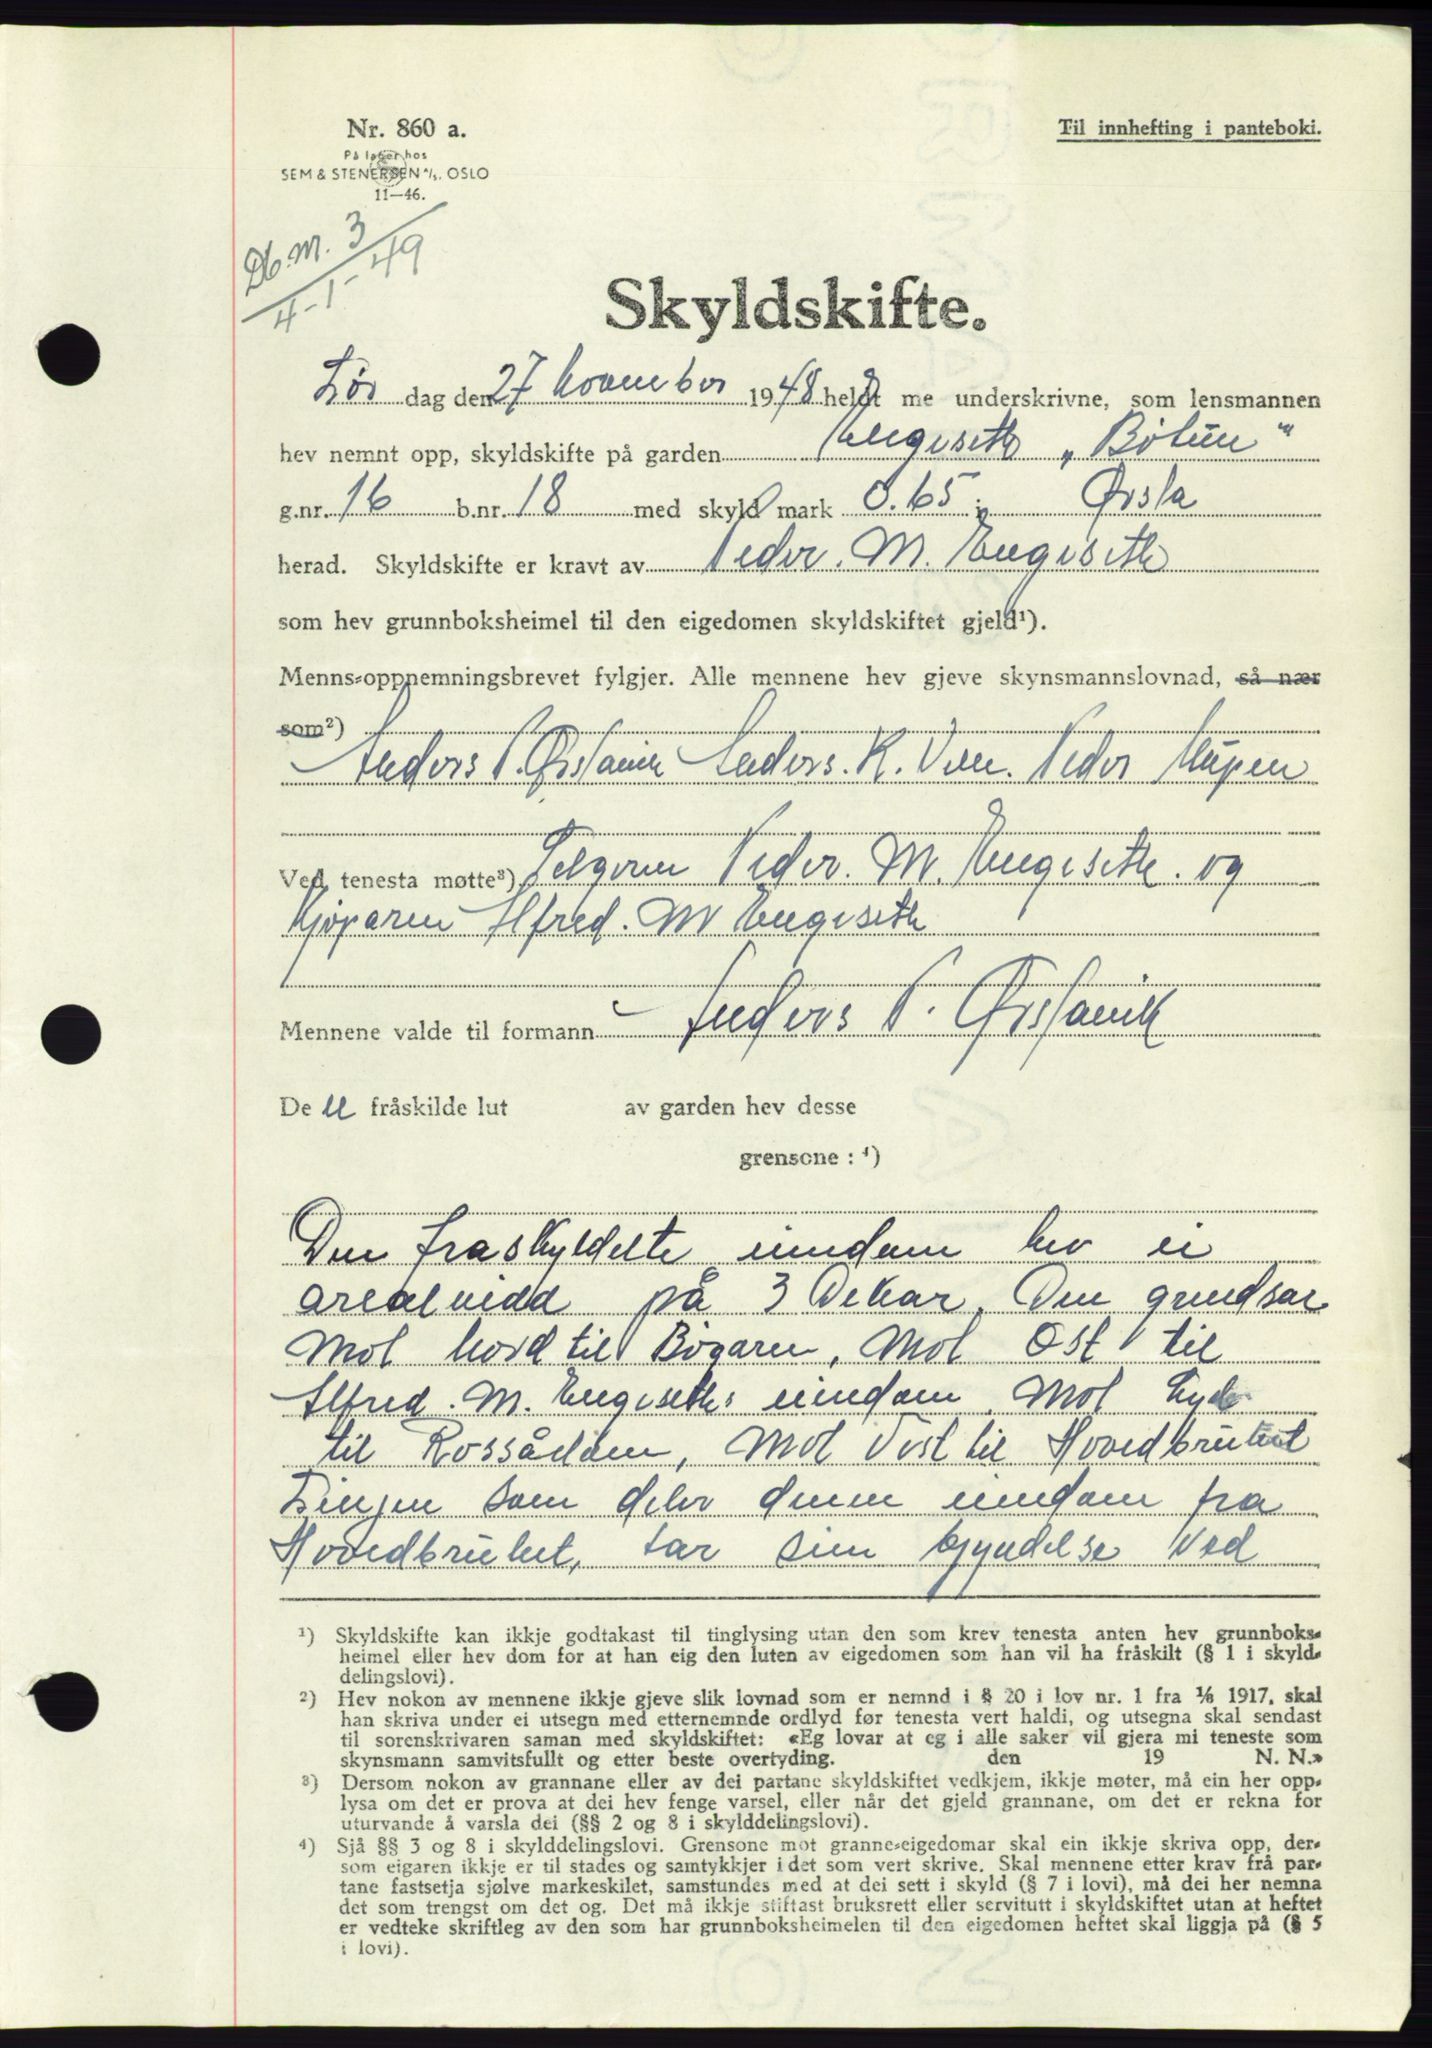 Nr. 860 a.
På lager hos
SEM & STENERSEN A/S, OSLO
11—46.
Til innhefting i panteboki.
Db. nr. 3
4-1-49
Skyldskifte.
Lør dag den 27 November 1948 heldt me underskrivne, som lensmannen
hev nemnt opp, skyldskifte på garden Engeseth „Bötun"
g.nr. 16 b.nr. 18 med skyld mark 0.65 i Ørsta
herad. Skyldskifte er kravt av Peder. M. Engeseth
som hev grunnboksheimel til den eigedomen skyldskiftet gjeld¹).
Menns-oppnemningsbrevet fylgjer. Alle mennene hev gjeve skynsmannslovnad, så nær
som²)
Anders P. Ørstavik Anders. K. Vin. Peder Mupen
Ved tenesta møtte³) Selgeren Peder. M. Engeseth. og
Kjøparen Alfred. M Engeseth
Mennene valde til formann Anders P. Ørstavik
De n fråskilde lut av garden hev desse
grensone : ⁴)
Den fraskyldelte eindom hev ei
arealvidd på 3 Dekar. Den grendsar
Mot Nord til Bøgaren, Mot Øst til
Alfred. M. Engeseths eindom. Mot Syd
til Rossådam, Mot Vest til Hovedbruket
Linjen som deler denne eindom fra
Hovedbruket, tar sin byndelse ved
¹) Skyldskifte kan ikkje godtakast til tinglysing utan den som krev tenesta anten hev grunnboks-
heimel eller hev dom for at han eig den luten av eigedomen som han vil ha fråskilt (§ 1 i skyld-
delingslovi).
²) Hev nokon av mennene ikkje gjeve slik lovnad som er nemnd i § 20 i lov nr. 1 fra ⅙ 1917, skal
han skriva under ei utsegn med etternemnde ordlyd før tenesta vert haldi, og utsegna skal sendast
til sorenskrivaren saman med skyldskiftet: «Eg lovar at eg i alle saker vil gjera mi teneste som
skynsmann samvitsfullt og etter beste overtyding. den 19 N. N.»
³) Dersom nokon av grannane eller av dei partane skyldskiftet vedkjem, ikkje møter, må ein her opp-
lysa om det er prova at dei hev fenge varsel, eller når det gjeld grannane, om det er rekna for
uturvande å varsla dei (§§ 2 og 8 i skylddelingslovi).
⁴) Sjå §§ 3 og 8 i skylddelingslovi. Grensone mot granne-eigedomar skal ein ikkje skriva opp, der-
som eigaren ikkje er til stades og samtykkjer i det som vert skrive. Skal mennene etter krav frå par-
tane fastsetja sjølve markeskilet, samstundes med at dei sett i skyld (§ 7 i lovi), må dei her nemna
det som trengst om det og. Det må ikkje stiftast bruksrett eller servitutt i skyldskiftet utan at heftet
er vedteke skriftleg av den som har grunnboksheimelen til den eigedomen heftet skal liggja på (§ 5
i lovi).